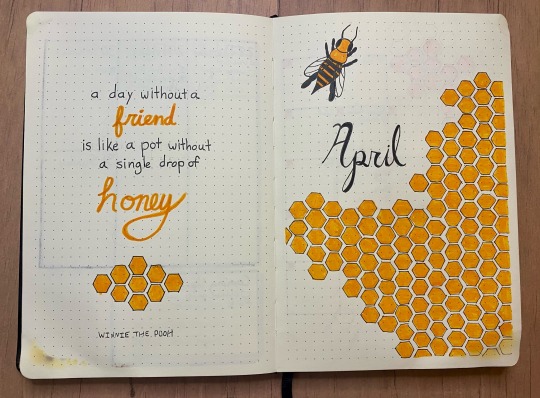 a day without a
friend
is like a pot without
a single drop of
honey
WINNIE THE POOH
April